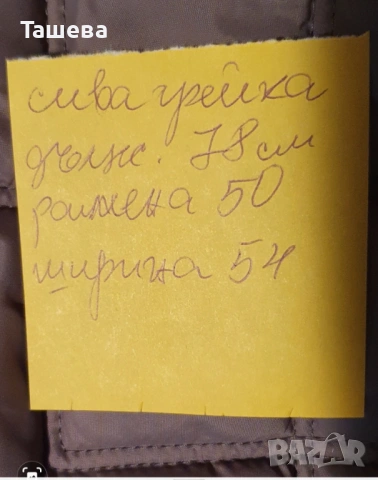 Ташева
сива грейка
дължс. 78 см
рамена 50
ширина 54
BAZAR